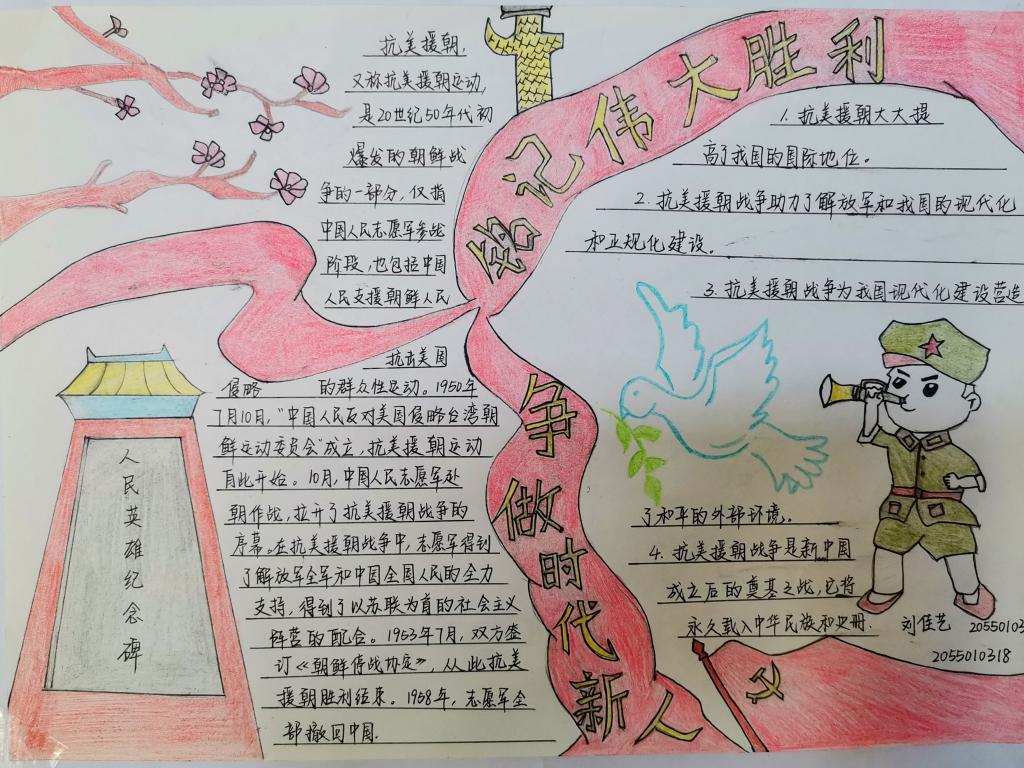 铭记伟大胜利
争做时代新人
抗美援朝,
又称抗美援朝运动,
是20世纪50年代初
爆发的朝鲜战
争的一部分,仅指
中国人民志愿军参战
阶段,也包括中国
人民支援朝鲜人民
抗击美国
侵略 的群众性运动。1950年
7月10日,“中国人民反对美国侵略台湾朝
鲜运动委员会”成立,抗美援朝运动
自此开始。10月,中国人民志愿军赴
朝作战,拉开了抗美援朝战争的
序幕。在抗美援朝战争中,志愿军得到
了解放军全军和中国全国人民的全力
支持,得到了以苏联为首的社会主义
阵营的配合。1953年7月,双方签
订《朝鲜停战协定》,从此抗美
援朝胜利结束。1958年,志愿军全
部撤回中国.
人民英雄纪念碑
1.抗美援朝大大提
高了我国的国际地位。
2.抗美援朝战争助力了解放军和我国的现代化
和正规化建设。
3.抗美援朝战争为我国现代化建设营造
了和平的外部环境。
4.抗美援朝战争是新中国
成立后的奠基之战,它将
永久载入中华民族和史册.
刘佳艺 20550103
2055010318